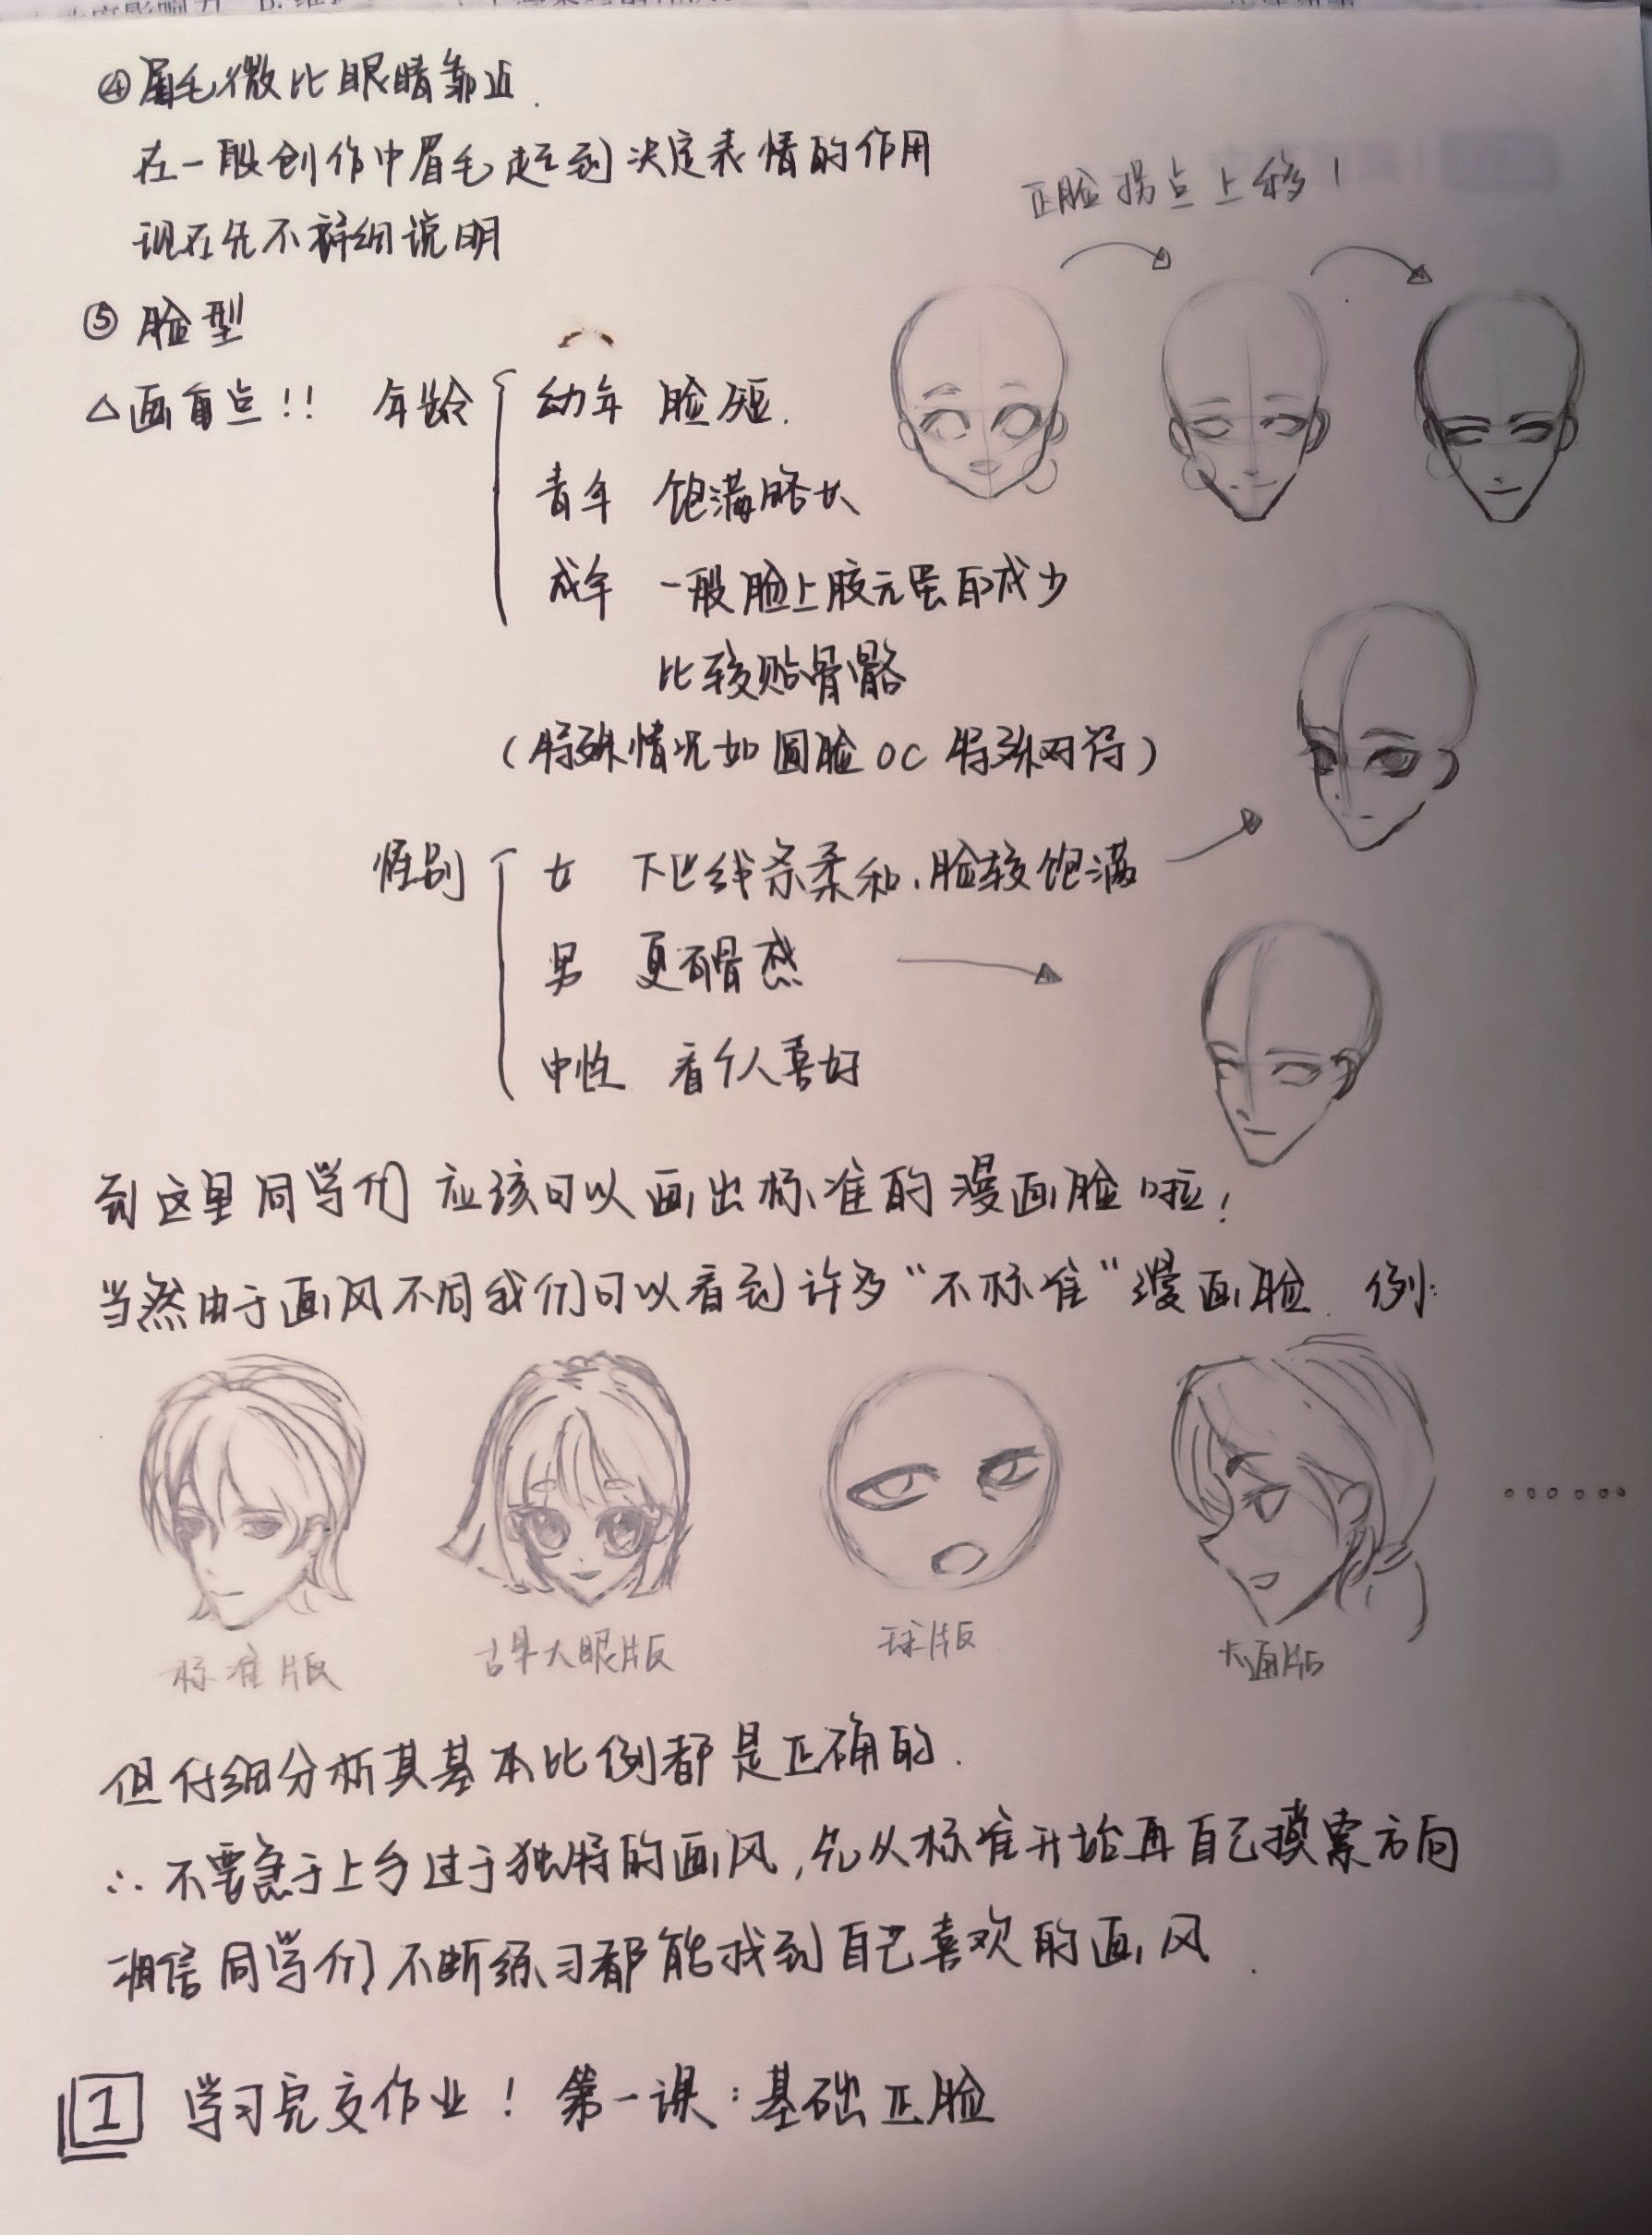 ④眉毛微比眼睛靠近.
在一般创作中眉毛起到决定表情的作用
现在先不详细说明
正脸拐点上移!
⑤ 脸型
△画盲点!! 年龄 幼年 脸短.
青年 饱满略大
成年 一般脸上胶元蛋白成少
比较贴骨骼
(特殊情况如圆脸OC特殊对待)
性别 女 下巴线条柔和、脸较饱满
男 更有骨感
中性 看个人喜好
到这里同学们应该可以画出标准的漫画脸啦!
当然由于画风不同我们可以看到许多“不标准”漫画脸. 例:
······
标准版
古早大眼版
球版
卡画版
但仔细分析其基本比例都是正确的.
∴不要急于上手过于独特的画风,先从标准开始再自己摸索方向
相信同学们不断练习都能找到自己喜欢的画风.
1 学习完交作业! 第一课:基础正脸